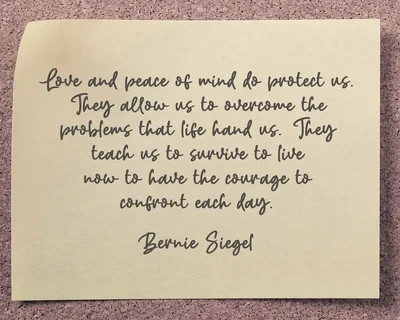 Love and peace of mind do protect us.
They allow us to overcome the
problems that life hand us. They
teach us to survive to live
now to have the courage to
confront each day.
Bernie Siegel